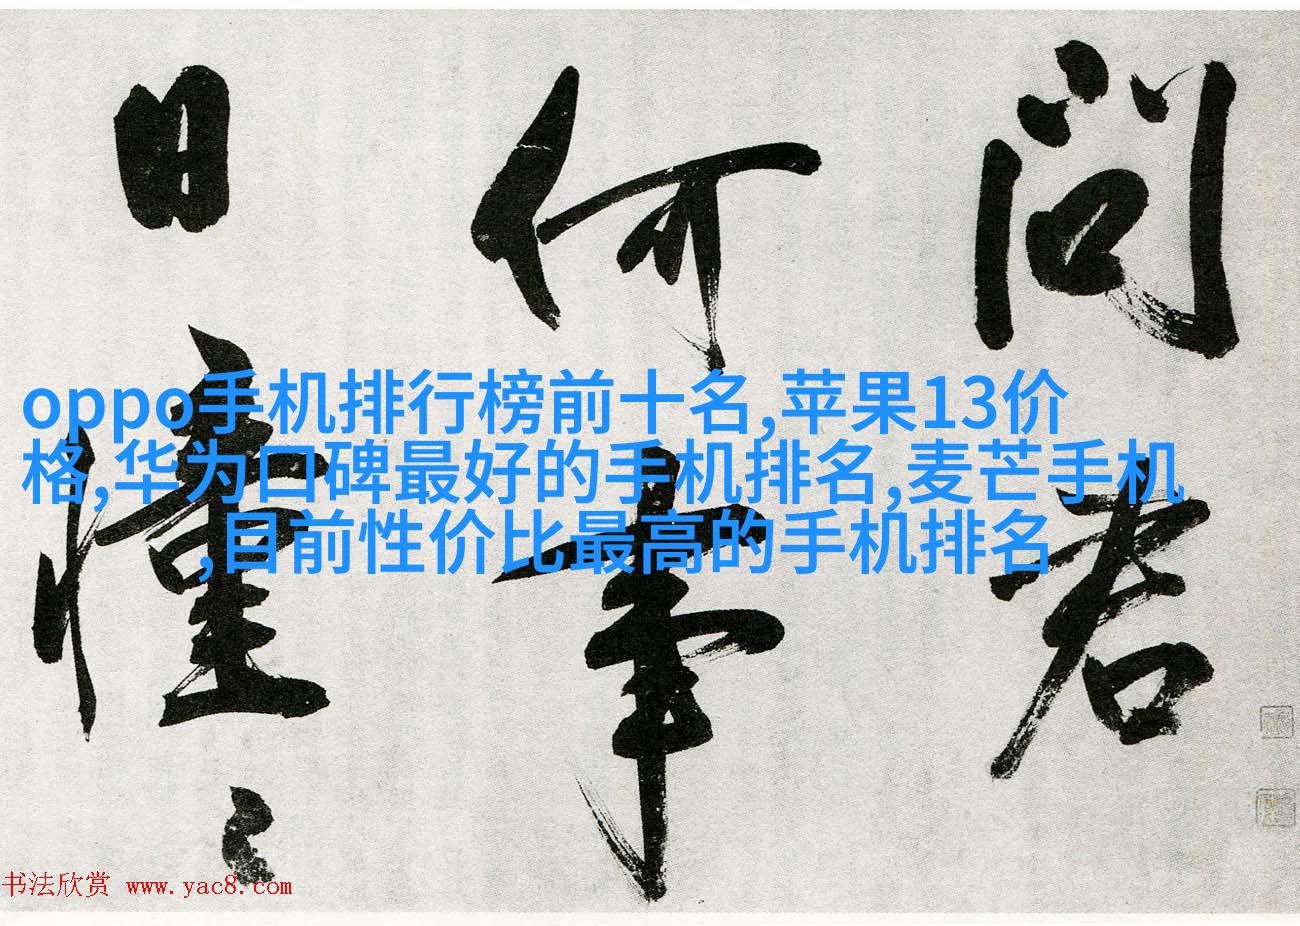 问君
何事
日憧々
oppo手机排行榜前十名,苹果13价
格,华为口碑最好的手机排名,麦芒手机
,目前性价比最高的手机排名
书法欣赏 www.yac8.com